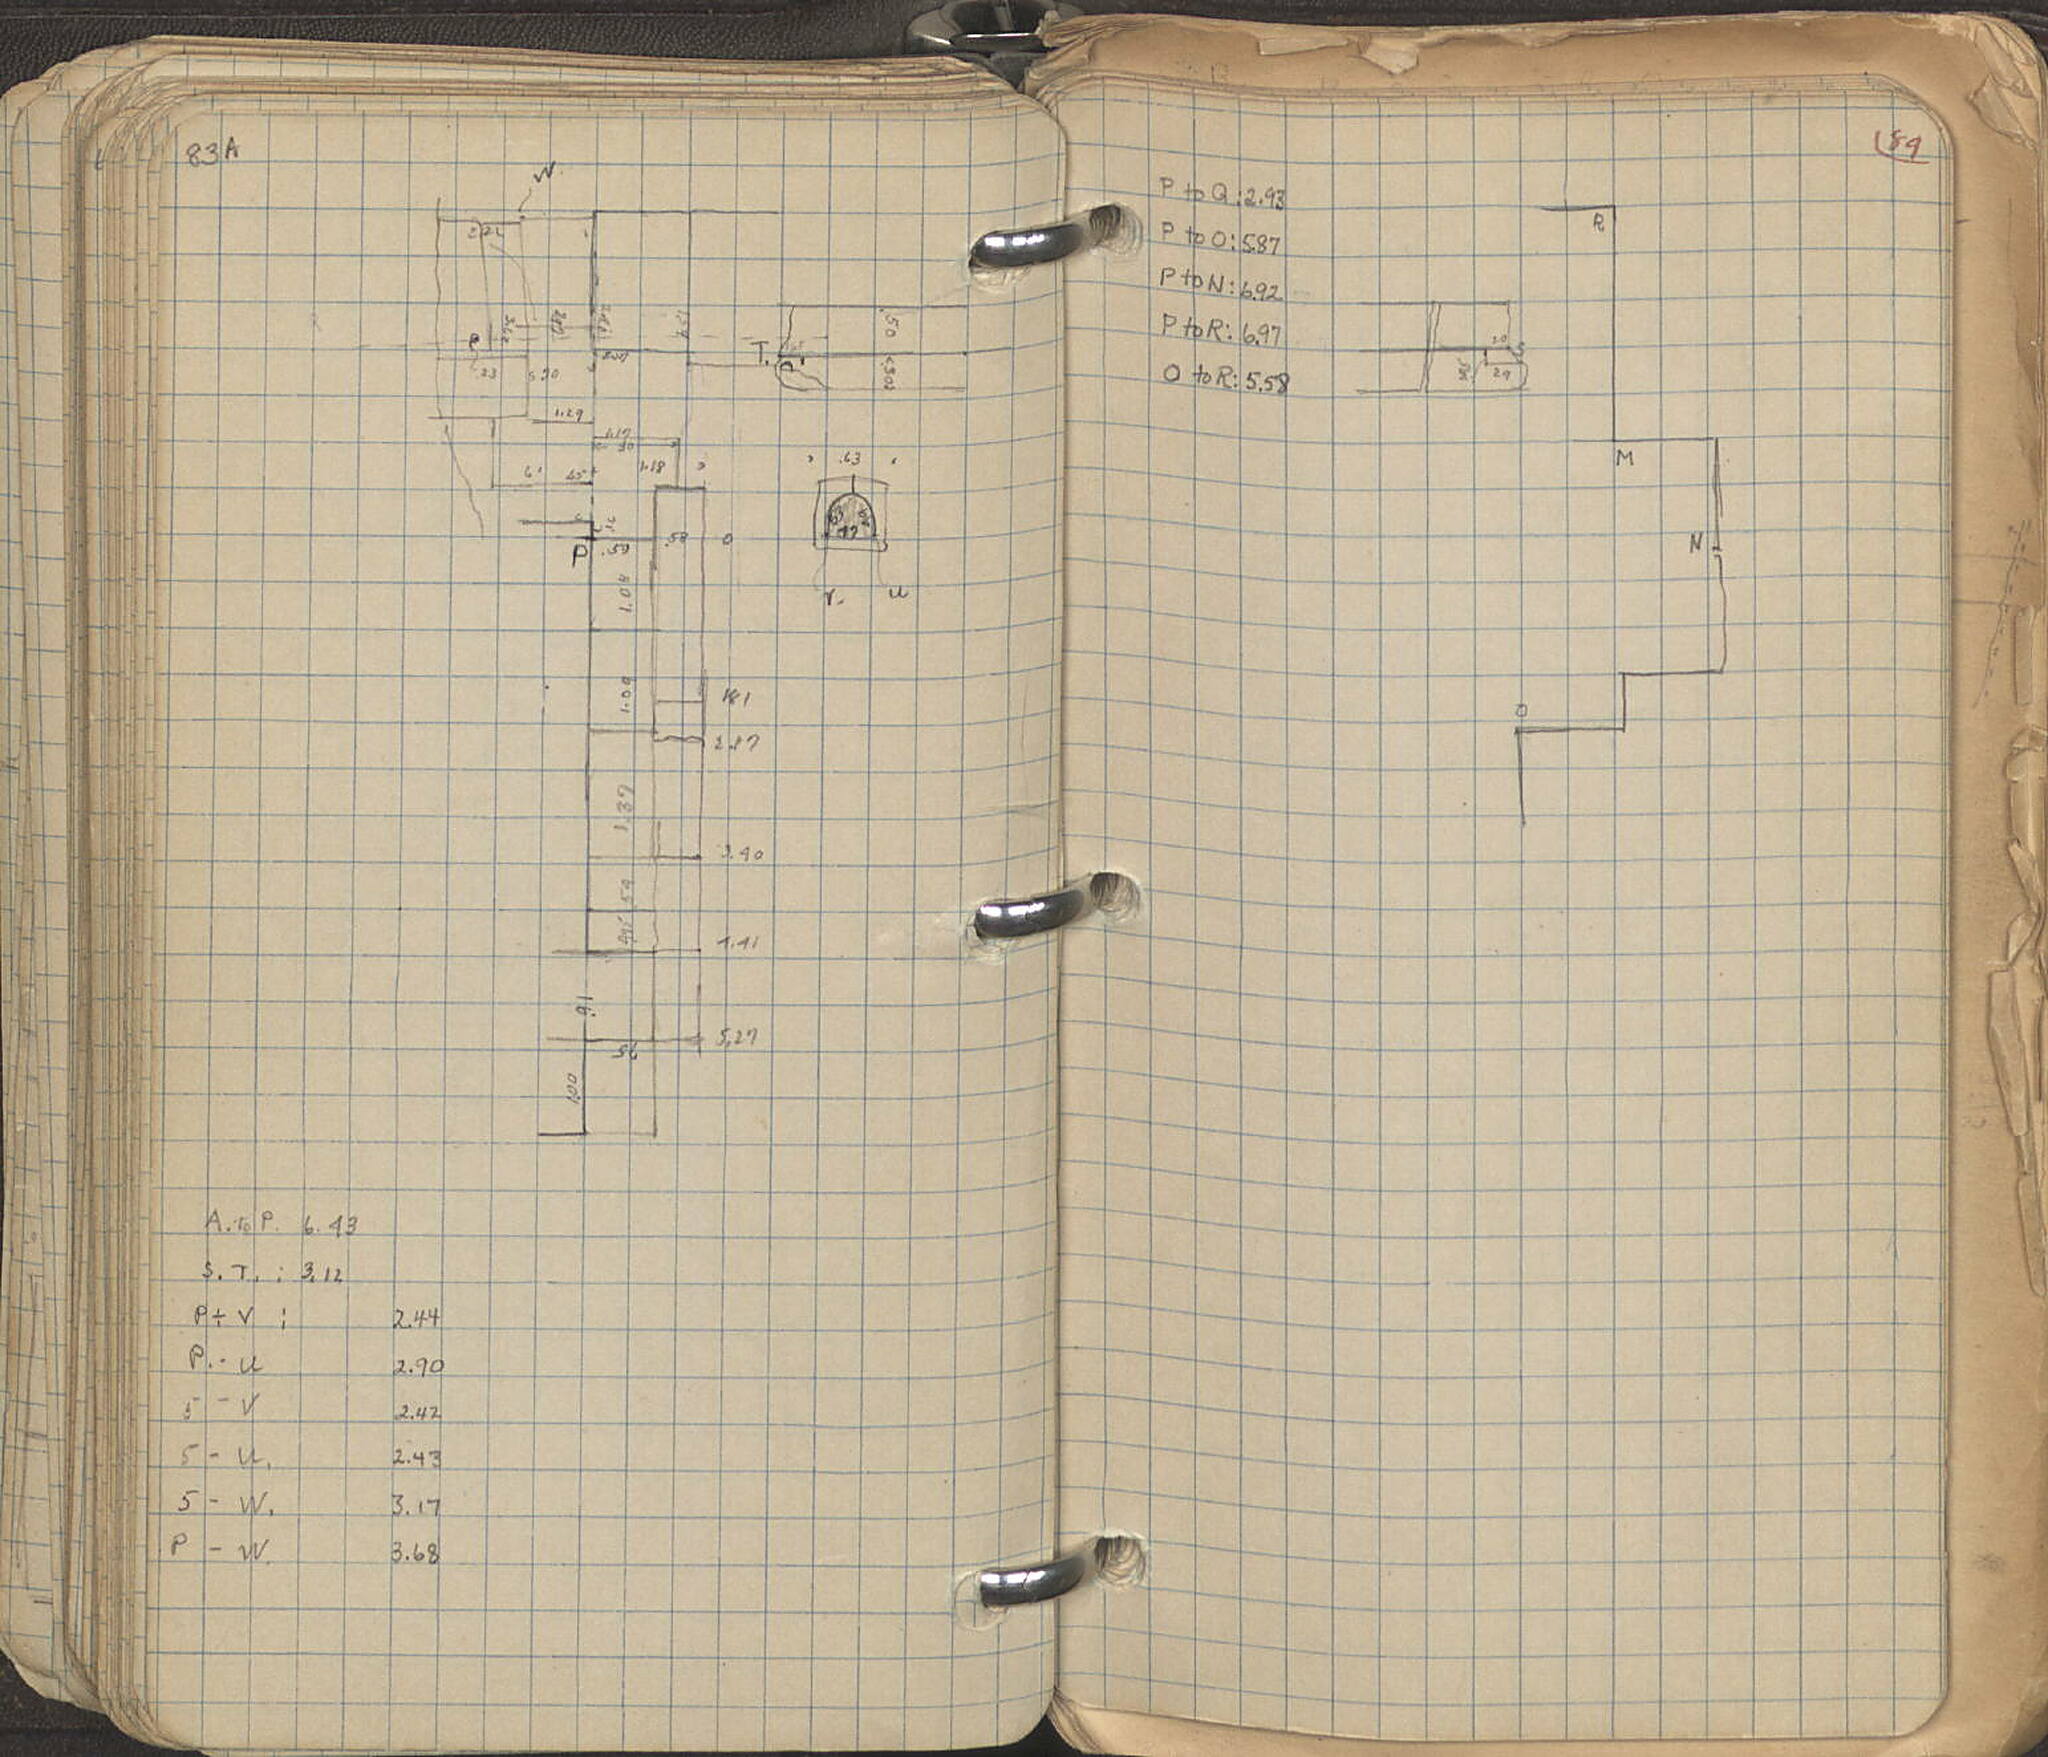 83A
W.
1.29
1.17
.30
6
.45
1.18
P
.59
.58
0
1.04
1.09
1.81
2.27
1.37
3.40
.59
4.41
.91
5.27
.56
1.00
T.
P'
.50
(.50)
.63
V.
U
A. to P. 6.43
S. T. : 3.12
P ÷ V : 2.44
P. - U 2.90
5 - V 2.42
5 - U. 2.43
5 - W. 3.17
P - W. 3.68
84
P to Q : 2.93
P to O : 5.87
P to N : 6.92
P to R : 6.97
O to R : 5.58
R
S
29
M
N
O